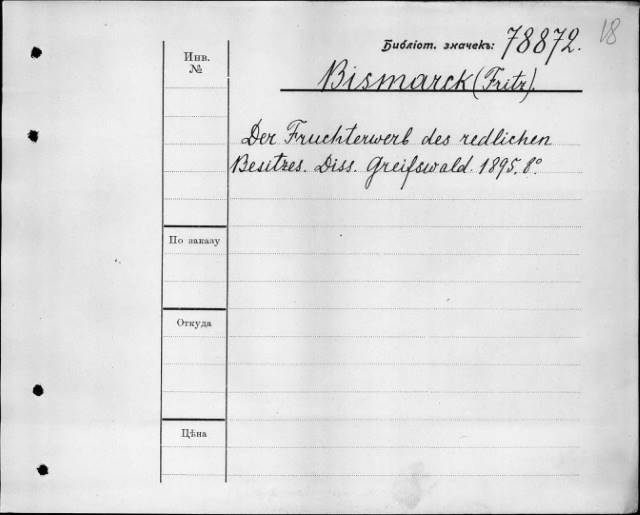 18
Библіот. значекъ: 78872.
Инв.
№
Bismarck (Fritz).
Der Fruchterwerb des redlichen
Besitzes. Diss. Greifswald. 1895. 8°.
По заказу
Откуда
Цѣна